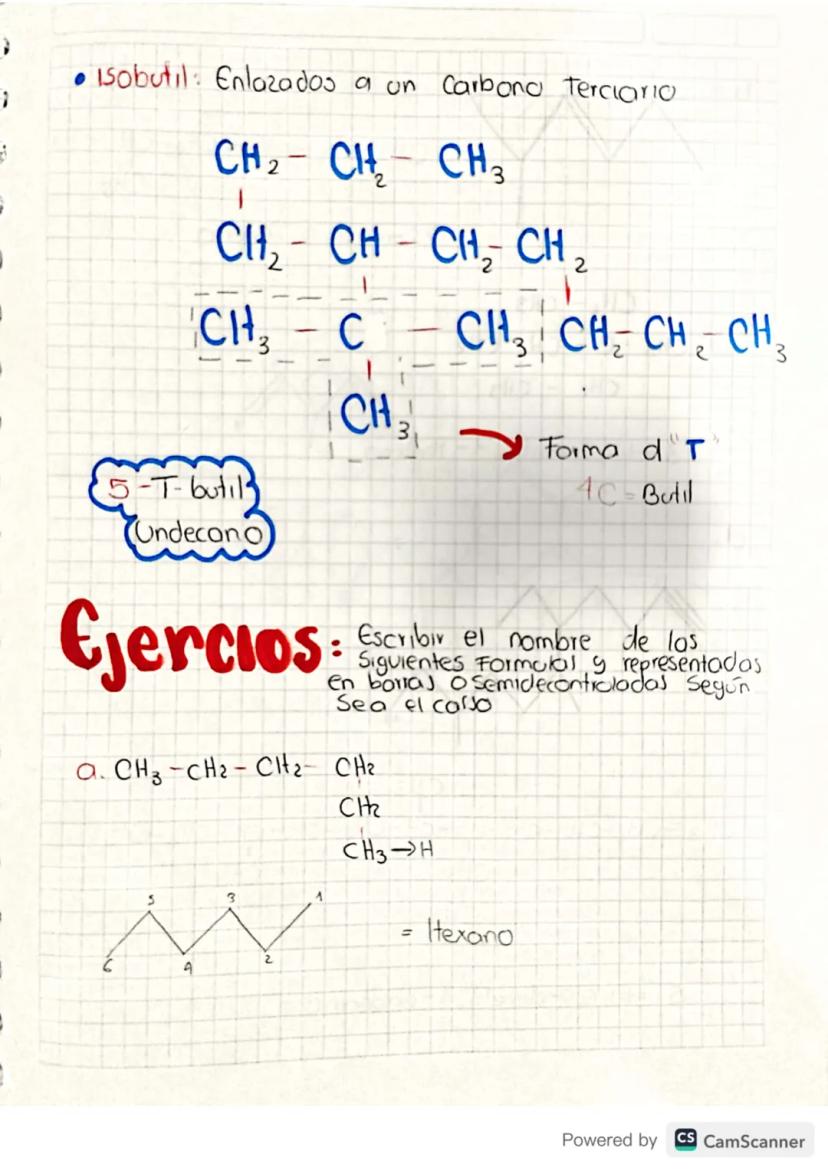 • Isobutil: Enlazados a un Carbono Terciario
CH₂ - CH₂ - CH₃
CH₂ - CH - CH₂ - CH₂
CH₃ - C - CH₃ CH₂ - CH₂ - CH₃
CH₃
Forma d "T"
4C = Butil
5-T-butil
Undecano
Ejercios: Escribir el nombre de las
siguientes Formulas y representadas
en barras o semidecontroladas Según
Sea el caso
a. CH₃ - CH₂ - CH₂ - CH₂
CH₂
CH₃→H
5 3 1
6 4 2
= Hexano
Powered by CS CamScanner